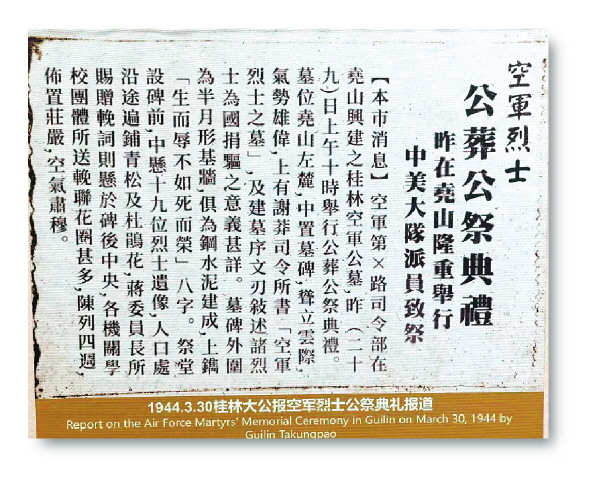 空軍烈士
公葬公祭典禮
昨在堯山隆重舉行
中美大隊派員致祭
【本市消息】空軍第×路司令部在
堯山興建之桂林空軍公墓,昨(二十
九)日上午十時舉行公葬公祭典禮。
墓位堯山左麓,中置墓碑,聳立雲際,
氣勢雄偉,上有謝莽司令所書「空軍
烈士之墓」,及建墓序文刃敍述諸烈
士為國捐軀之意義甚詳。墓碑外圍
為半月形基牆,俱為鋼水泥建成,上鐫
「生而辱不如死而榮」八字。祭堂
設碑前,中懸十九位烈士遺像,人口處
沿途遍鋪青松及杜鵑花,蔣委員長所
賜贈輓詞則懸於碑後中央,各機關學
校團體所送輓聯花圈甚多,陳列四週,
佈置莊嚴,空氣肅穆。
1944.3.30桂林大公报空军烈士公祭典礼报道
Report on the Air Force Martyrs' Memorial Ceremony in Guilin on March 30, 1944 by
Guilin Takungpao